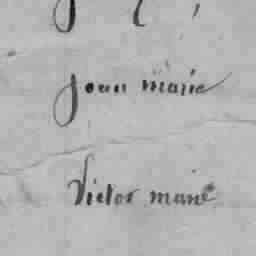 jean marie
Victor marie